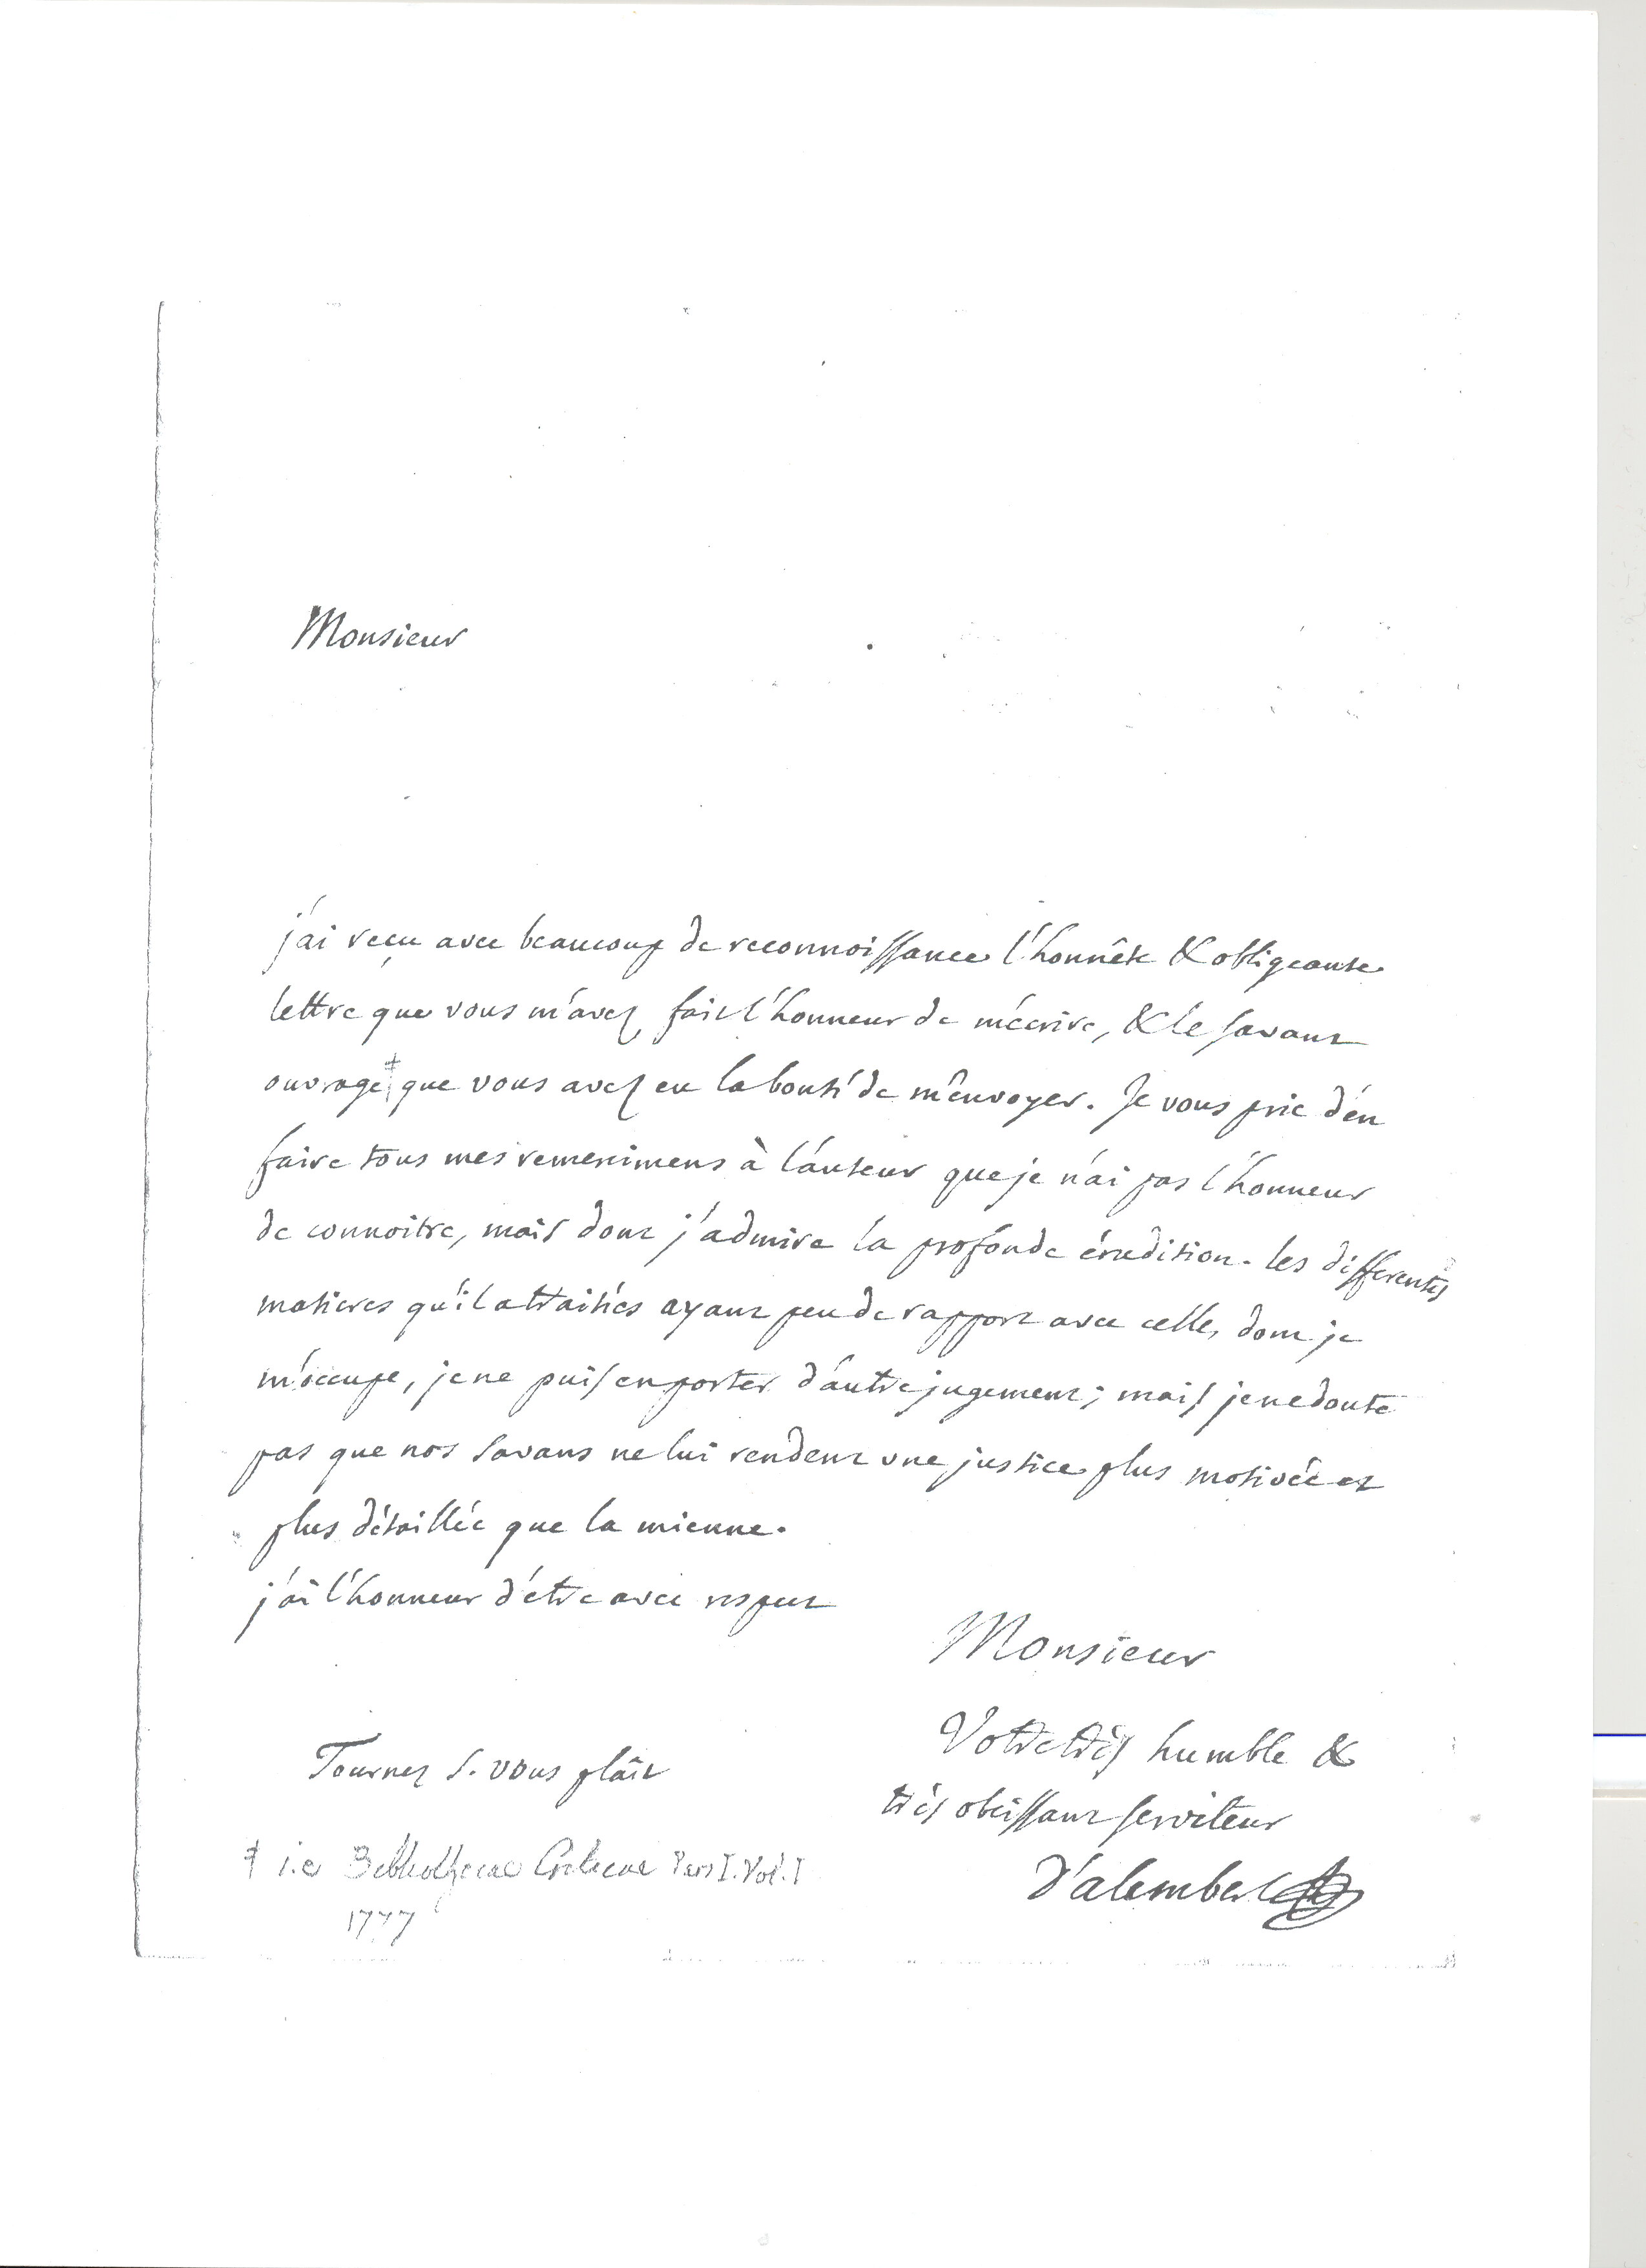 Monsieur
j'ai reçu avec beaucoup de reconnoissance l'honnête & obligeante
lettre que vous m'avez fait l'honneur de m'écrire, & le savant
ouvrage ‡ que vous avez eu la bonté de m'envoyer. Je vous prie d'en
faire tous mes remercimens à l'auteur que je n'ai pas l'honneur
de connoitre, mais dont j'admire la profonde érudition. les differentes
matieres qu'il a traitées ayant peu de rapport avec celles dont je
m'occupe, je ne puis en porter d'autre jugement; mais je ne doute
pas que nos savans ne lui rendent une justice plus motivée et
plus détaillée que la mienne.
j'ai l'honneur d'etre avec respect
Monsieur
Votre très humble &
très obéissant serviteur
d'alembert
Tournez s. vous plâit
‡ i.e Bibliothecae Criticae Pars I. Vol. I
1777